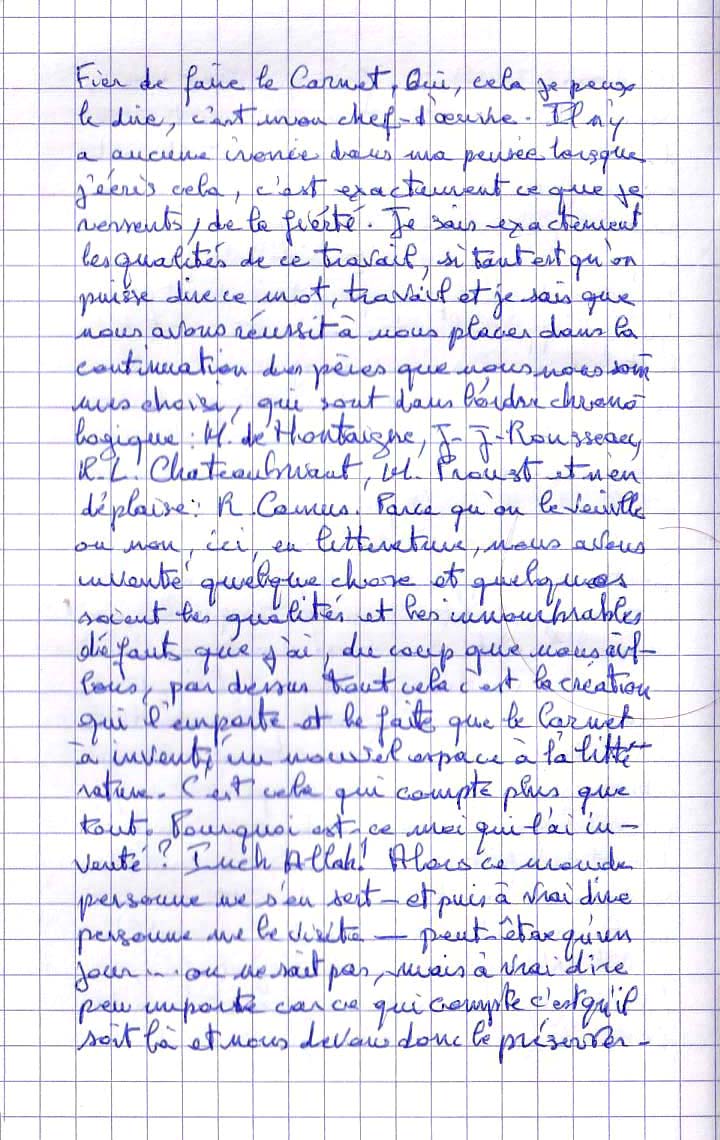 Fier de faire le Carnet, Oui, cela je peux
le dire, c'est mon chef-d'œuvre. Il n'y
a aucune ironie dans ma pensée lorsque
j'écris cela, c'est exactement ce que je
ressents, de la fiérté. Je sais exactement
les qualités de ce travail, si tant est qu'on
puisse dire ce mot, travail et je sais que
nous avons réussit à nous placer dans la
continuation des pères que nous nous som
mes choisi, qui sont dans l'ordre chrono
logique : M. de Montaigne, J-J-Rousseau,
R. Chateaubriant, M. Proust et n'en
déplaise : R. Camus. Parce qu'on le veuille
ou non, ici, en littérature, nous avons
inventé quelque chose et quelques
soient les qualités et les innombrables
défauts que j'ai, du coup que nous avi-
lons, par dessus tout cela c'est la création
qui l'emporte et le faite que le Carnet
à inventé un nouvel espace à la litté
rature. C'est cela qui compte plus que
tout. Pourquoi est-ce moi qui l'ai in-
venté ? Inch Allah ! Alors ce monde
personne ne s'en sert - et puis à vrai dire
personne ne le visite — peut-être qu'un
jour ... on ne sait pas, mais à vrai dire
peu importe car ce qui compte c'est qu'il
soit là et nous devons donc le préserver -